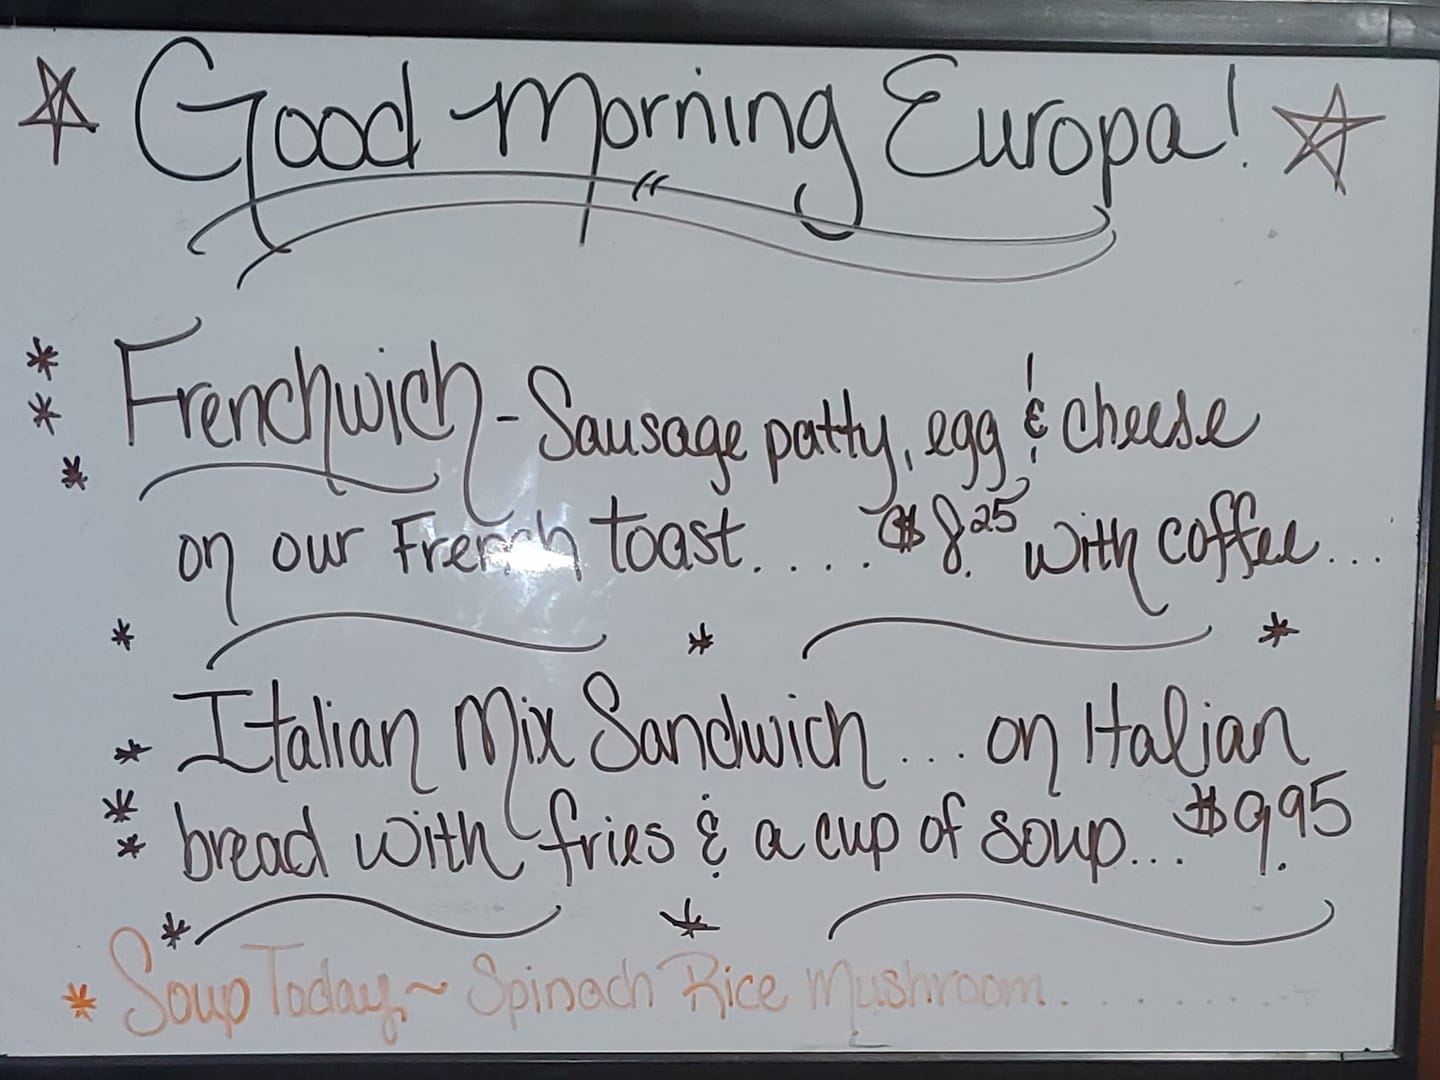 Good Morning Europa!
Frenchwich - Sausage patty, egg & cheese
on our French toast..... $8.25 with coffee...
Italian Mix Sandwich... on Italian
bread with fries & a cup of soup... $9.95
Soup Today ~ Spinach Rice Mushroom.........